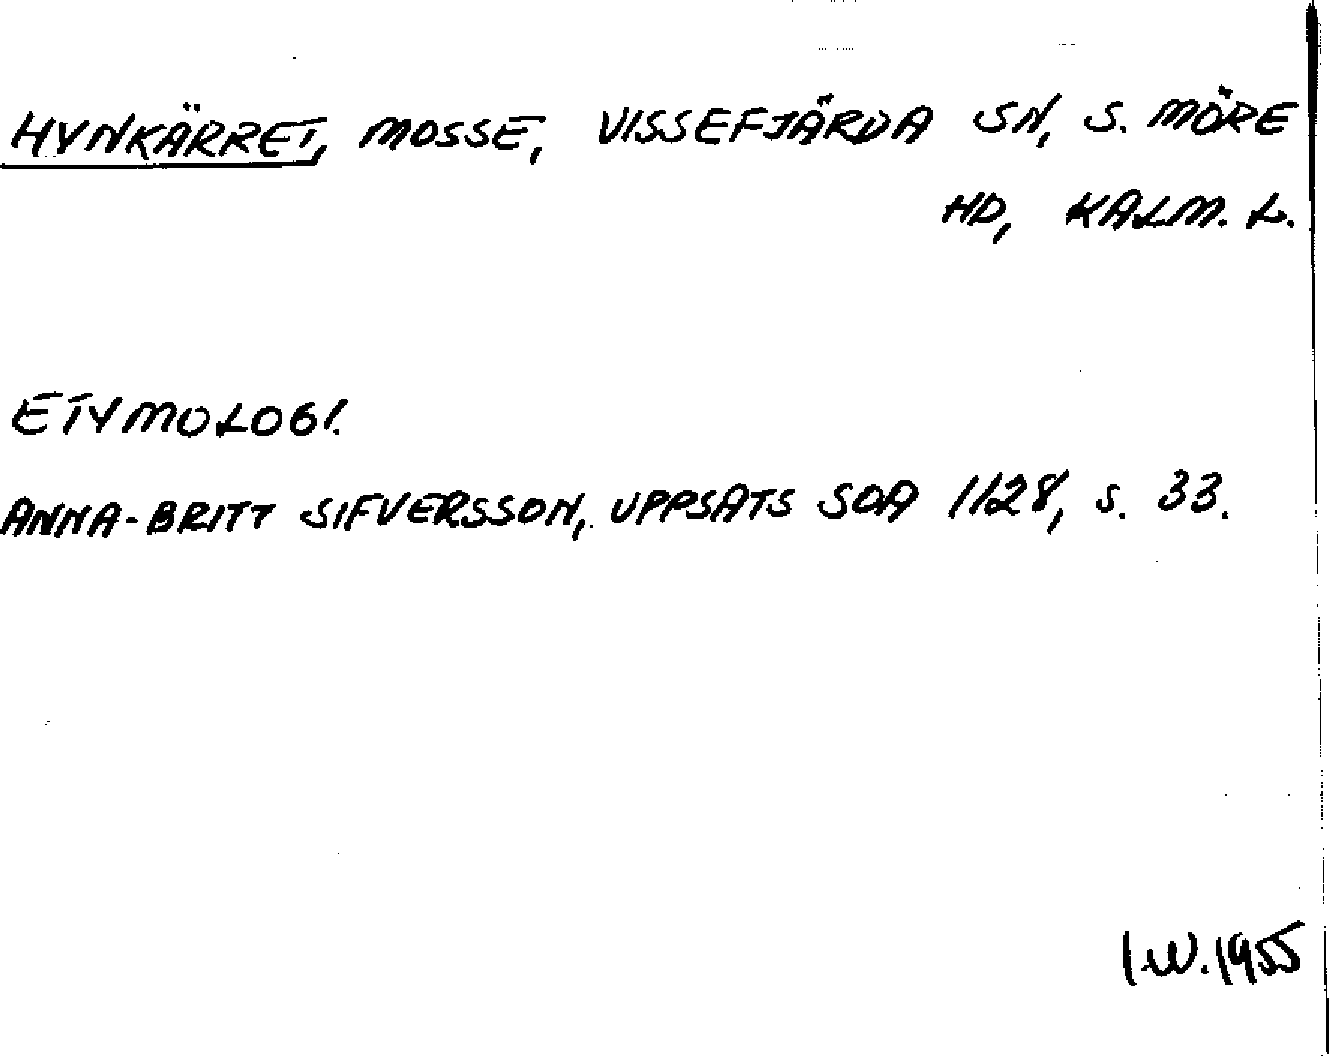 HYNKÄRRET, MOSSE, VISSEFJÄRDA SN, S. MÖRE
HD, KALM. L.
ETYMOLOGI.
ANNA-BRITT SIFVERSSON, UPPSATS SOA 1128, S. 33.
I.W. 1955